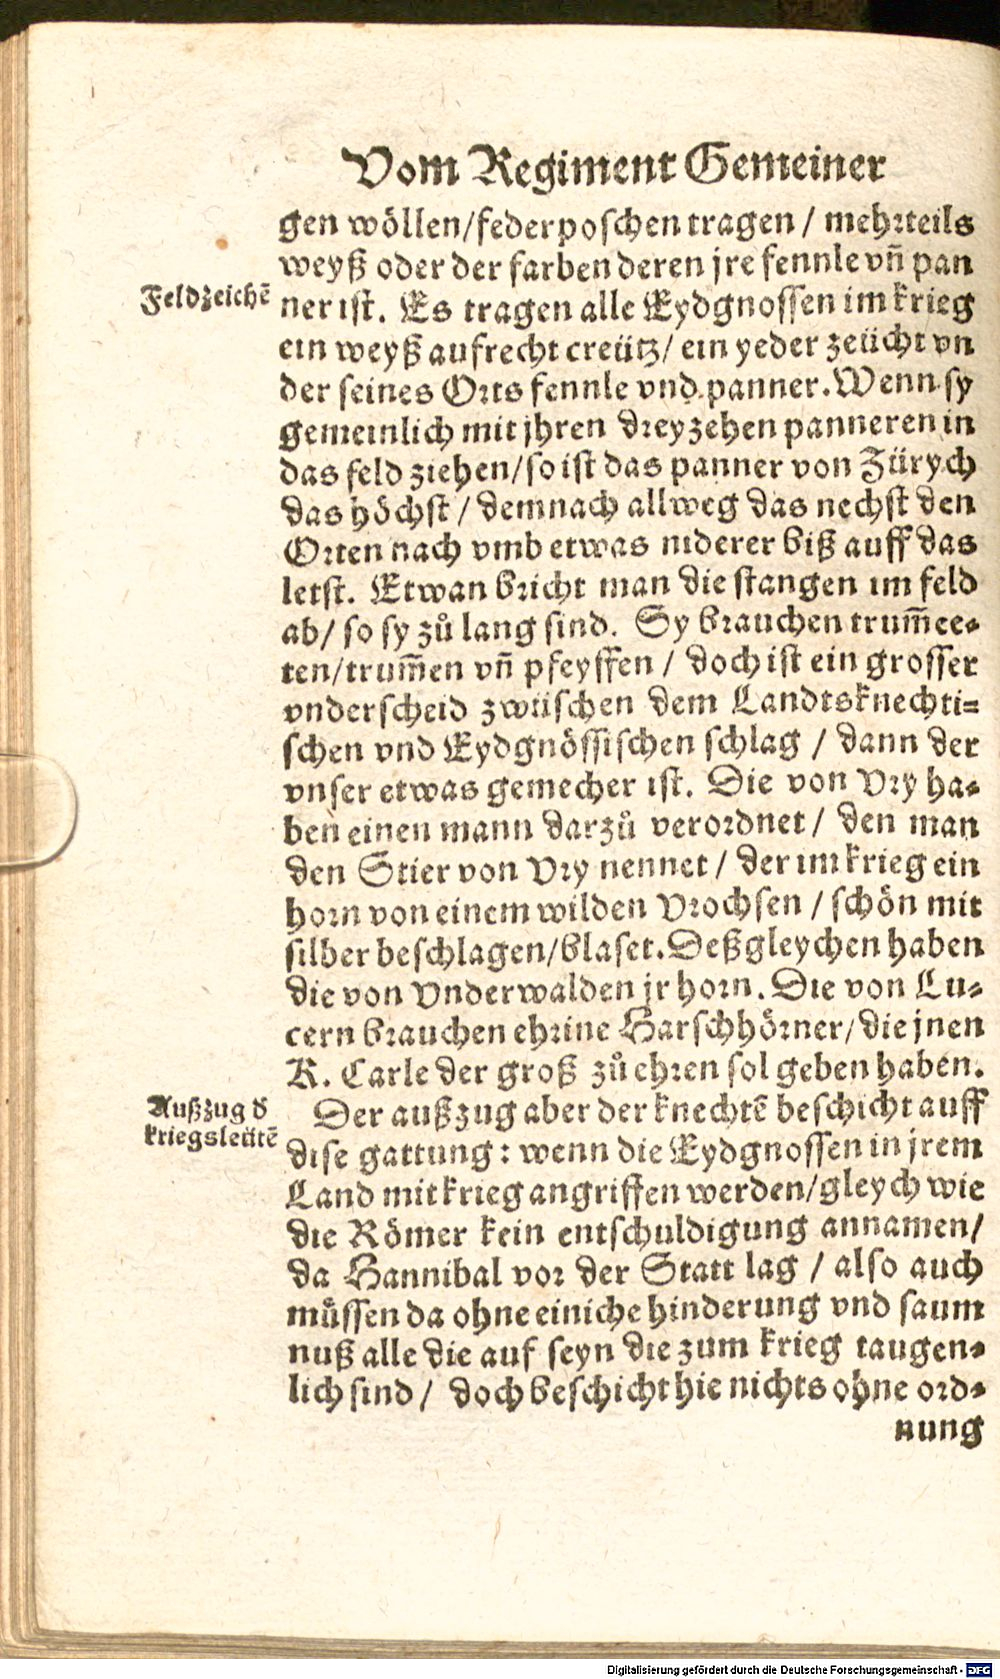 Vom Regiment Gemeiner
gen wöllen/federposchen tragen / mehrteils
weyß oder der farben deren jre fennle vñ pan
Feldzeichẽ
ner ist. Es tragen alle Eydgnossen im krieg
ein weyß aufrecht creütz/ ein yeder zeücht vn
der seines Orts fennle vnd panner. Wenn sy
gemeinlich mit jhren dreyzehen panneren in
das feld ziehen/so ist das panner von Zürych
das höchst / demnach allweg das nechst den
Orten nach vmb etwas niderer biß auff das
letst. Etwan bricht man die stangen im feld
ab/ so sy zů lang sind. Sy brauchen trum̃ee-
ten/trum̃en vñ pfeyffen / doch ist ein grosser
vnderscheid zwüschen dem Landtsknechti-
schen vnd Eydgnössischen schlag / dann der
vnser etwas gemecher ist. Die von Vry ha-
ben einen mann darzů verordnet / den man
den Stier von Vry nennet / der im krieg ein
horn von einem wilden Vrochsen / schön mit
silber beschlagen/blaset. Deßgleychen haben
die von Vnderwalden jr horn. Die von Lu-
cern brauchen ehrine Harschhörner/die jnen
K. Carle der groß zů ehren sol geben haben.
Außzug d̕
kriegsleütẽ
Der außzug aber der knechtẽ beschicht auff
dise gattung: wenn die Eydgnossen in jrem
Land mit krieg angriffen werden/gleych wie
die Römer kein entschuldigung annamen/
da Hannibal vor der Statt lag / also auch
müssen da ohne einiche hinderung vnd saum
nuß alle die auf seyn die zum krieg taugen-
lich sind / doch beschicht hie nichts ohne ord-
nung
Digitalisierung gefördert durch die Deutsche Forschungsgemeinschaft - DFG